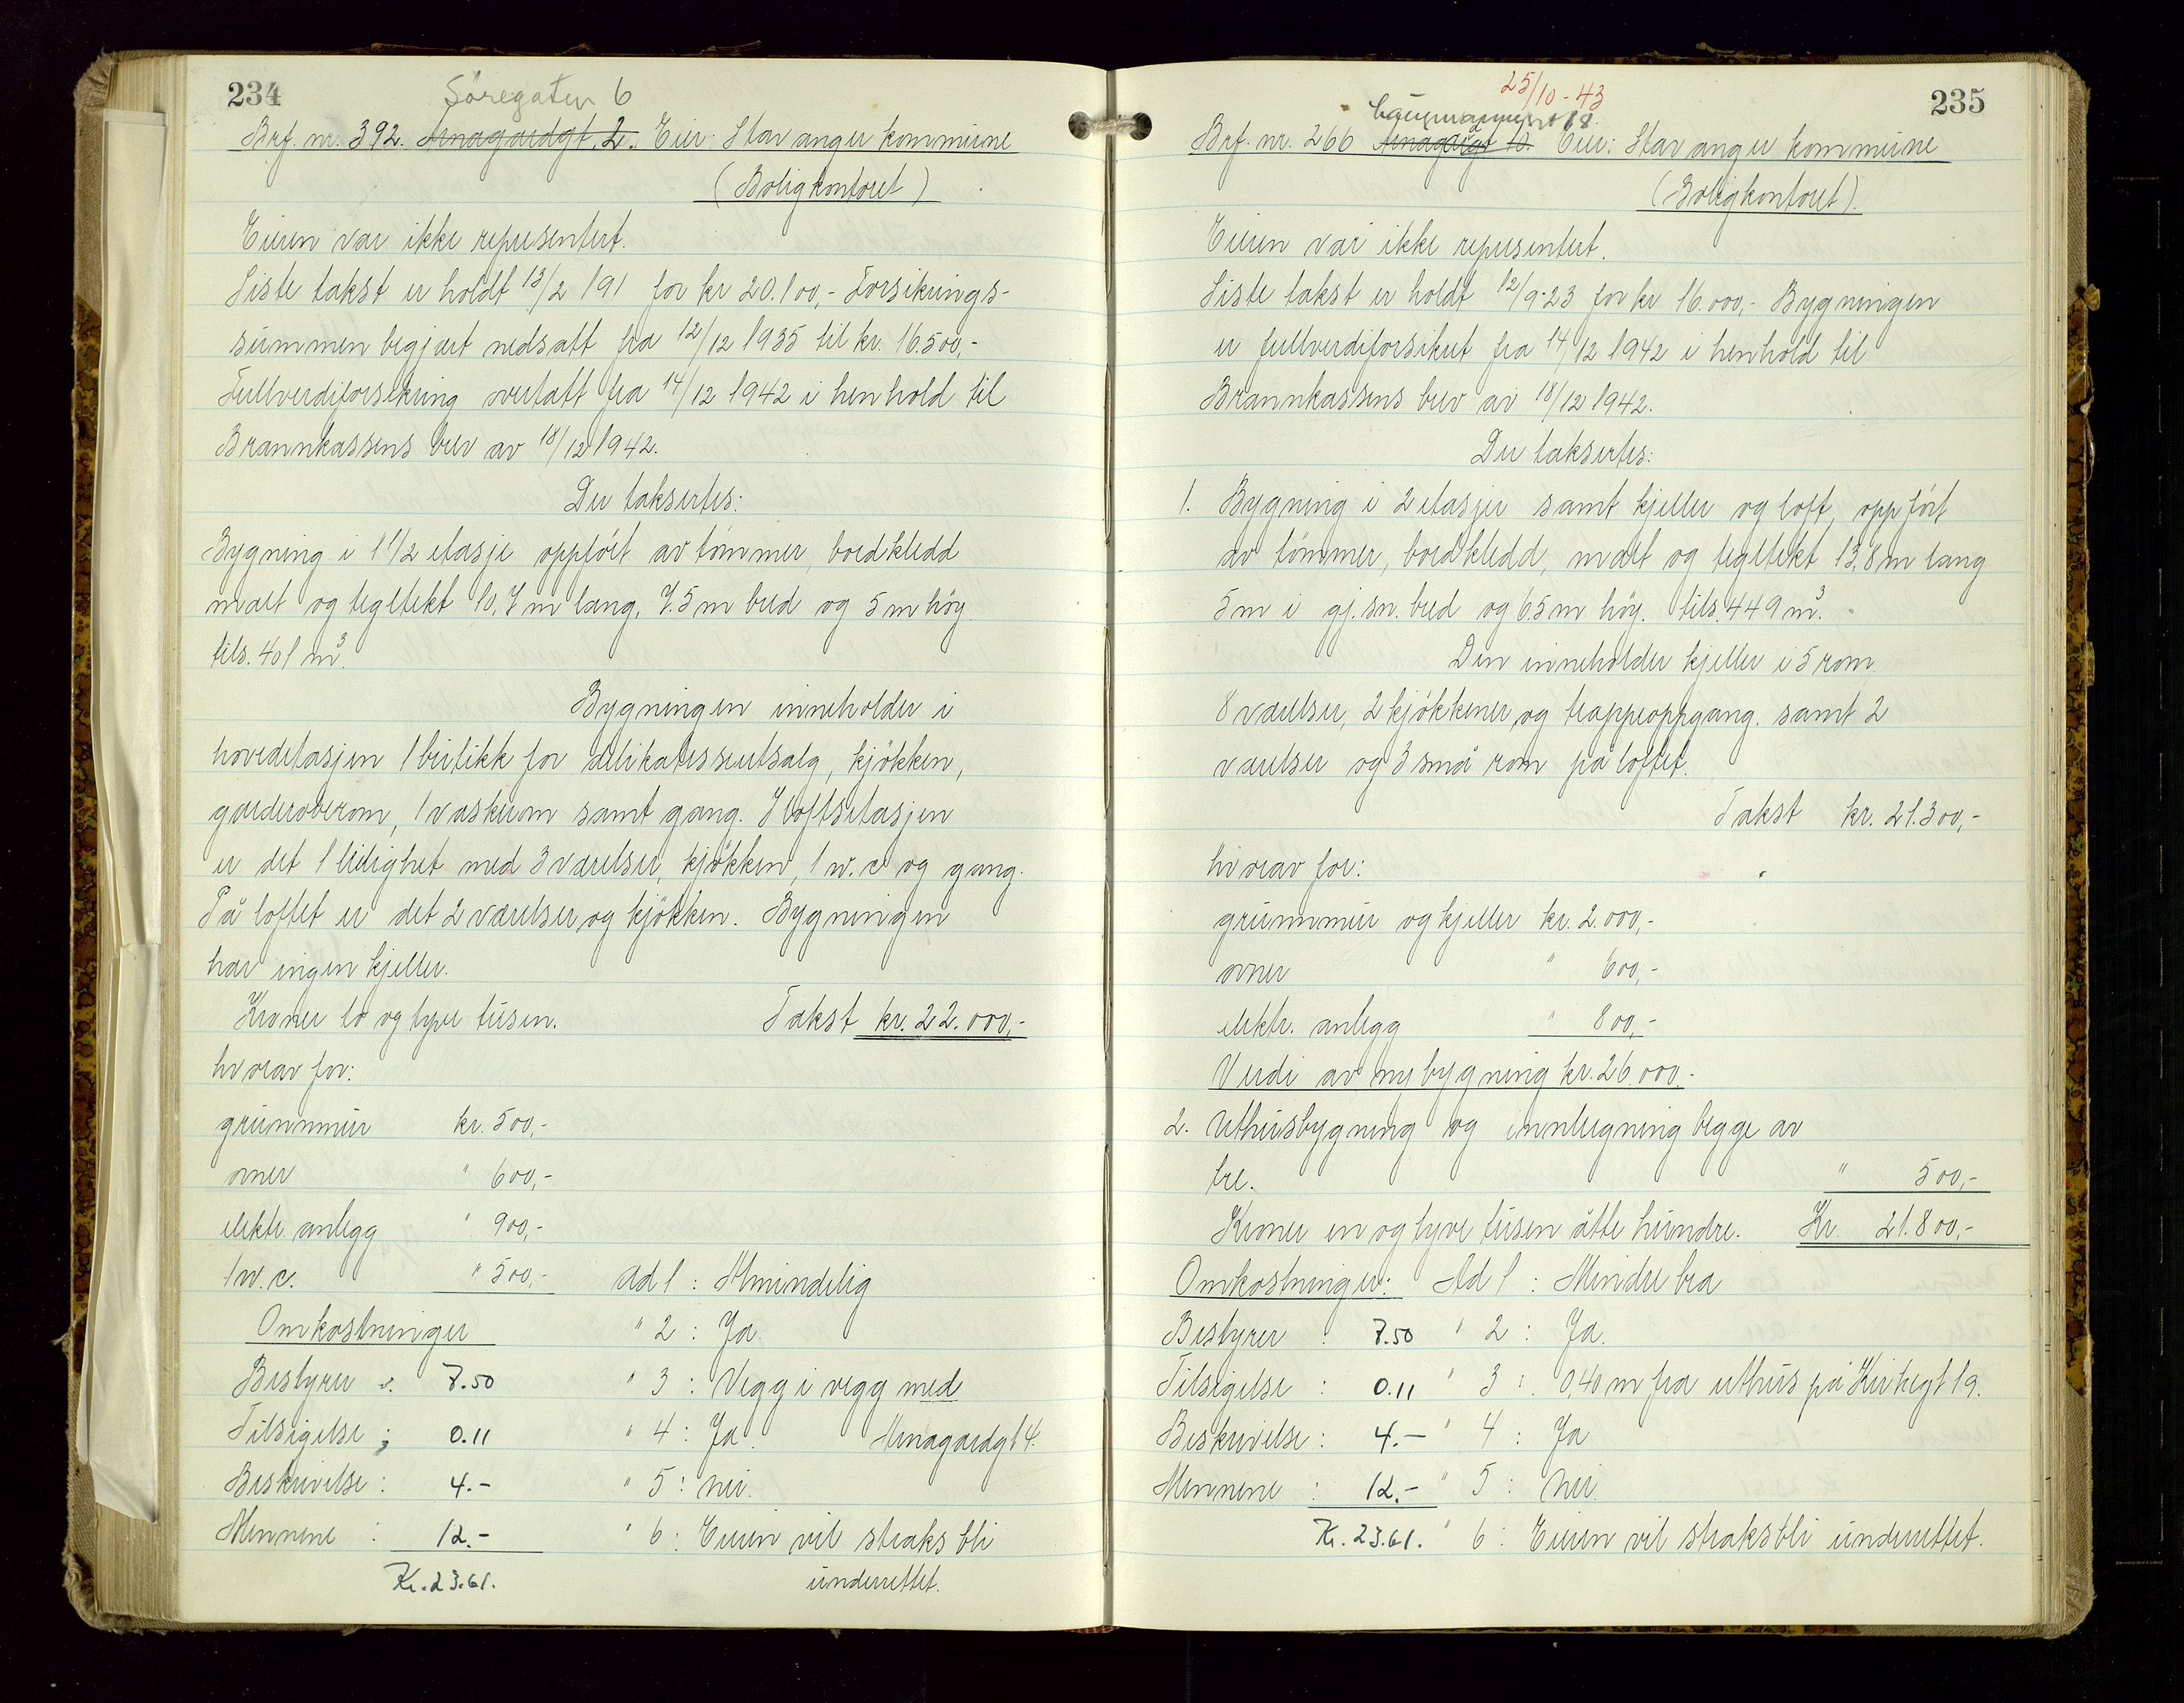 234
Söregaten 6
Brf. nr. 392. Arnagardgt. 2. Eier: Stavanger kommune
(Boligkontoret)
Eieren var ikke representert.
Siste takst er holdt 13/2 191 for kr 20.100,- Forsikrings-
summen begjært nedsatt fra 12/12 1935 til kr. 16.500,-
Fullverdiforsikring overtatt fra 14/12 1942 i henhold til
Brannkassens brev av 18/12 1942.
Der taksertes:
Bygning i 1 1/2 etasje oppfört av tömmer, bordkledd
malt og tegltekt 10,7 m lang, 7.5 m bred og 5 m höy
tils. 401 m³.
Bygningen inneholder i
hovedetasjen 1 butikk for delikatesseutsalg, kjökken,
garderoberom, 1 vaskerom samt gang. I loftsetasjen
er det 1 leilighet med 3 værelser, kjökken, 1 w.c og gang.
På loftet er det 2 værelser og kjökken. Bygningen
har ingen kjeller.
Kroner to og tyve tusen. Takst kr. 22.000,-
hvorav for:
grunnmur kr. 500,-
ovner " 600,-
elektr. anlegg " 900,-
1 w.c. " 500,- Ad 1 : Almindelig
Omkostninger " 2 : Ja
Bestyrer : 7.50 " 3 : Vegg i vegg med
Tilsigelse : 0.11 " 4 : Ja. Arnagardgt 4.
Beskrivelse : 4.- " 5 : nei.
Mennene : 12.- " 6 : Eieren vil straks bli
Kr. 23.61. underrettet.
235
25/10-43
18.
Brf. nr. 266 Arnagardgt 10. Eier: Stavanger kommune
(Boligkontoret).
Eieren var ikke representert.
Siste takst er holdt 12/9-23 for kr 16.000,- Bygningen
er fullverdiforsikret fra 14/12 1942 i henhold til
Brannkassens brev av 18/12 1942.
Der taksertes:
1. Bygning i 2 etasjer samt kjeller og loft, oppfört
av tömmer, bordkledd, malt og tegltekt 13,8 m lang
5 m i gj.sn. bred og 6.5 m höy. tils. 449 m³.
Den inneholder kjeller i 5 rom
8 værelser, 2 kjökkener og trappeoppgang. samt 2
værelser og 3 små rom på loftet.
Takst kr. 21.300,-
hvorav for:
grunnmur og kjeller kr. 2.000,-
ovner " 600,-
elektr. anlegg " 800,-
Verdi av nybygning kr. 26 000.-
2. Uthusbygning og innhegning begge av
tre. " 500,-
Kroner en og tyve tusen åtte hundre. Kr. 21.800,-
Omkostninger: Ad 1 : Mindre bra
Bestyrer : 7.50 " 2 : Ja.
Tilsigelse : 0.11 " 3 : 0,40 m fra uthus på Kirkegt 19.
Beskrivelse : 4.- " 4 : Ja
Mennene : 12.- " 5 : Nei.
Kr. 23.61. " 6 : Eieren vil straks bli underrettet.